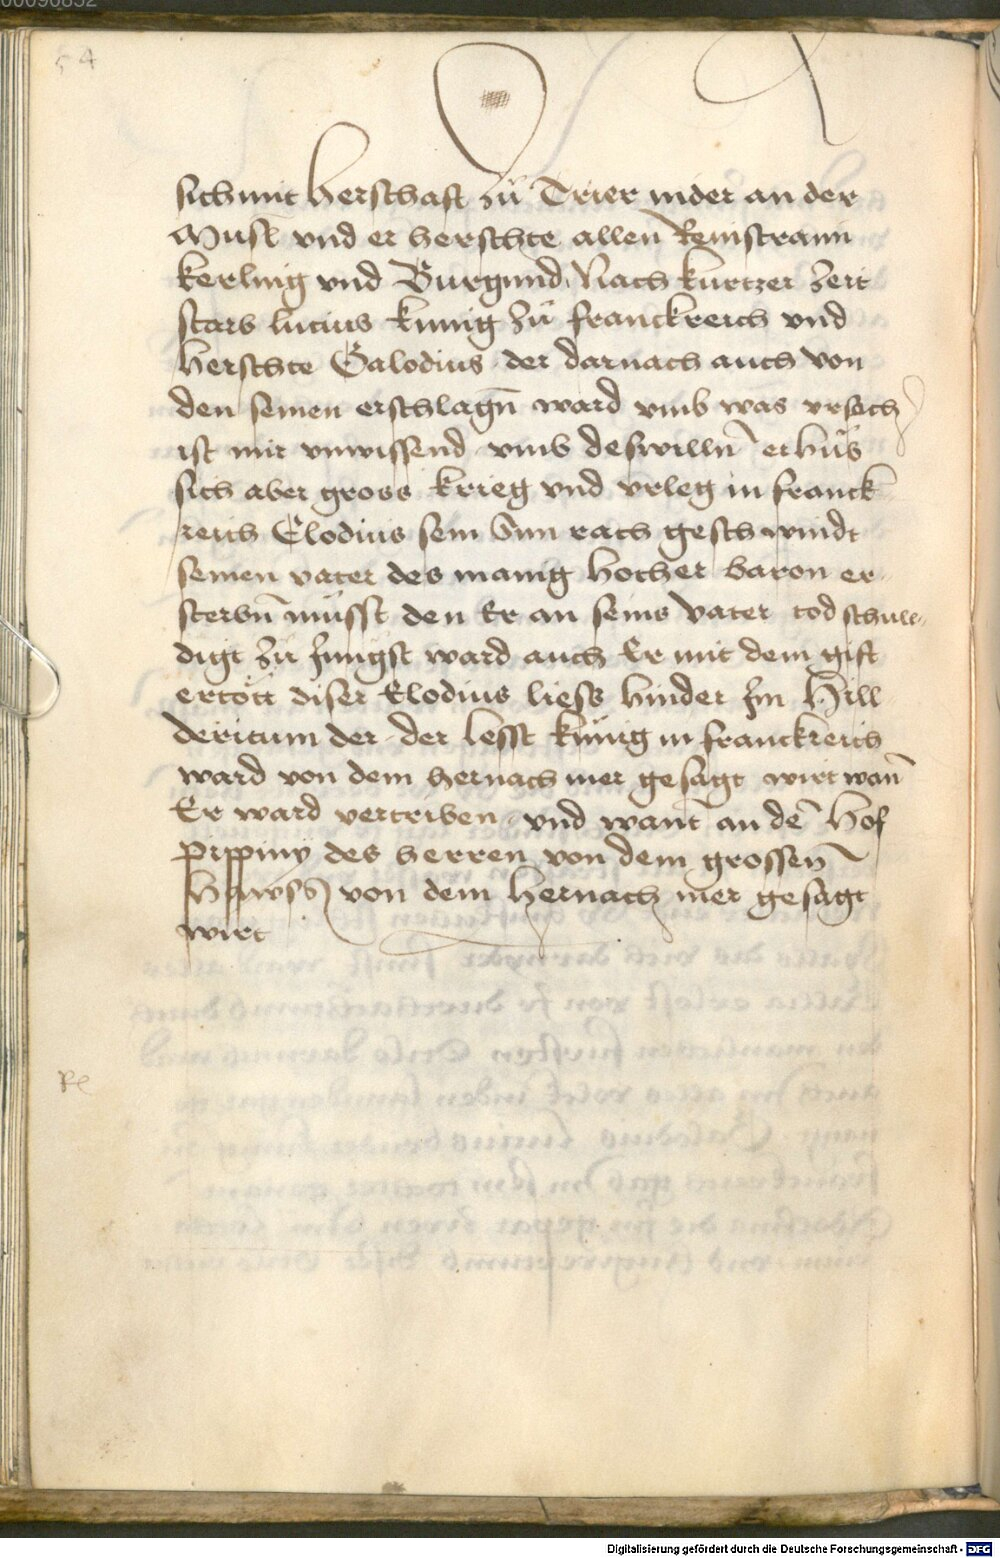 54
sich mit herschaft zů Trier nider an der
Musl vnd er herschte allen Reinstram
kerling vnd Burgund. Nach kurtzer Zeit
starb lucius kunig zů franckreich vnd
herschte Galodius der darnach auch von
den seinen erschlagn̄ ward vmb was vrsach
ist mir vnwissend vmb deswilln̄ erhůb
sich aber gross krieg vnd vrleg in franck
reich Clodius sein Sun rach geschwindt
seinen vater des manig hocher baron er
sterbn̄ můsst den Er an seins vater tod schull
digt zu Jungst ward auch Er mit dem gift
ertött diser Clodius liess hinder Im Hill
dericum der der lesst künig in franckreich
ward von dem hernach mer gesagt wirt wan̄
Er ward vertriben vnd want an dē hof
pippiny des herren von dem grossen
hawss von dem hernach mer gesagt
wirt
Digitalisierung gefördert durch die Deutsche Forschungsgemeinschaft - DFG